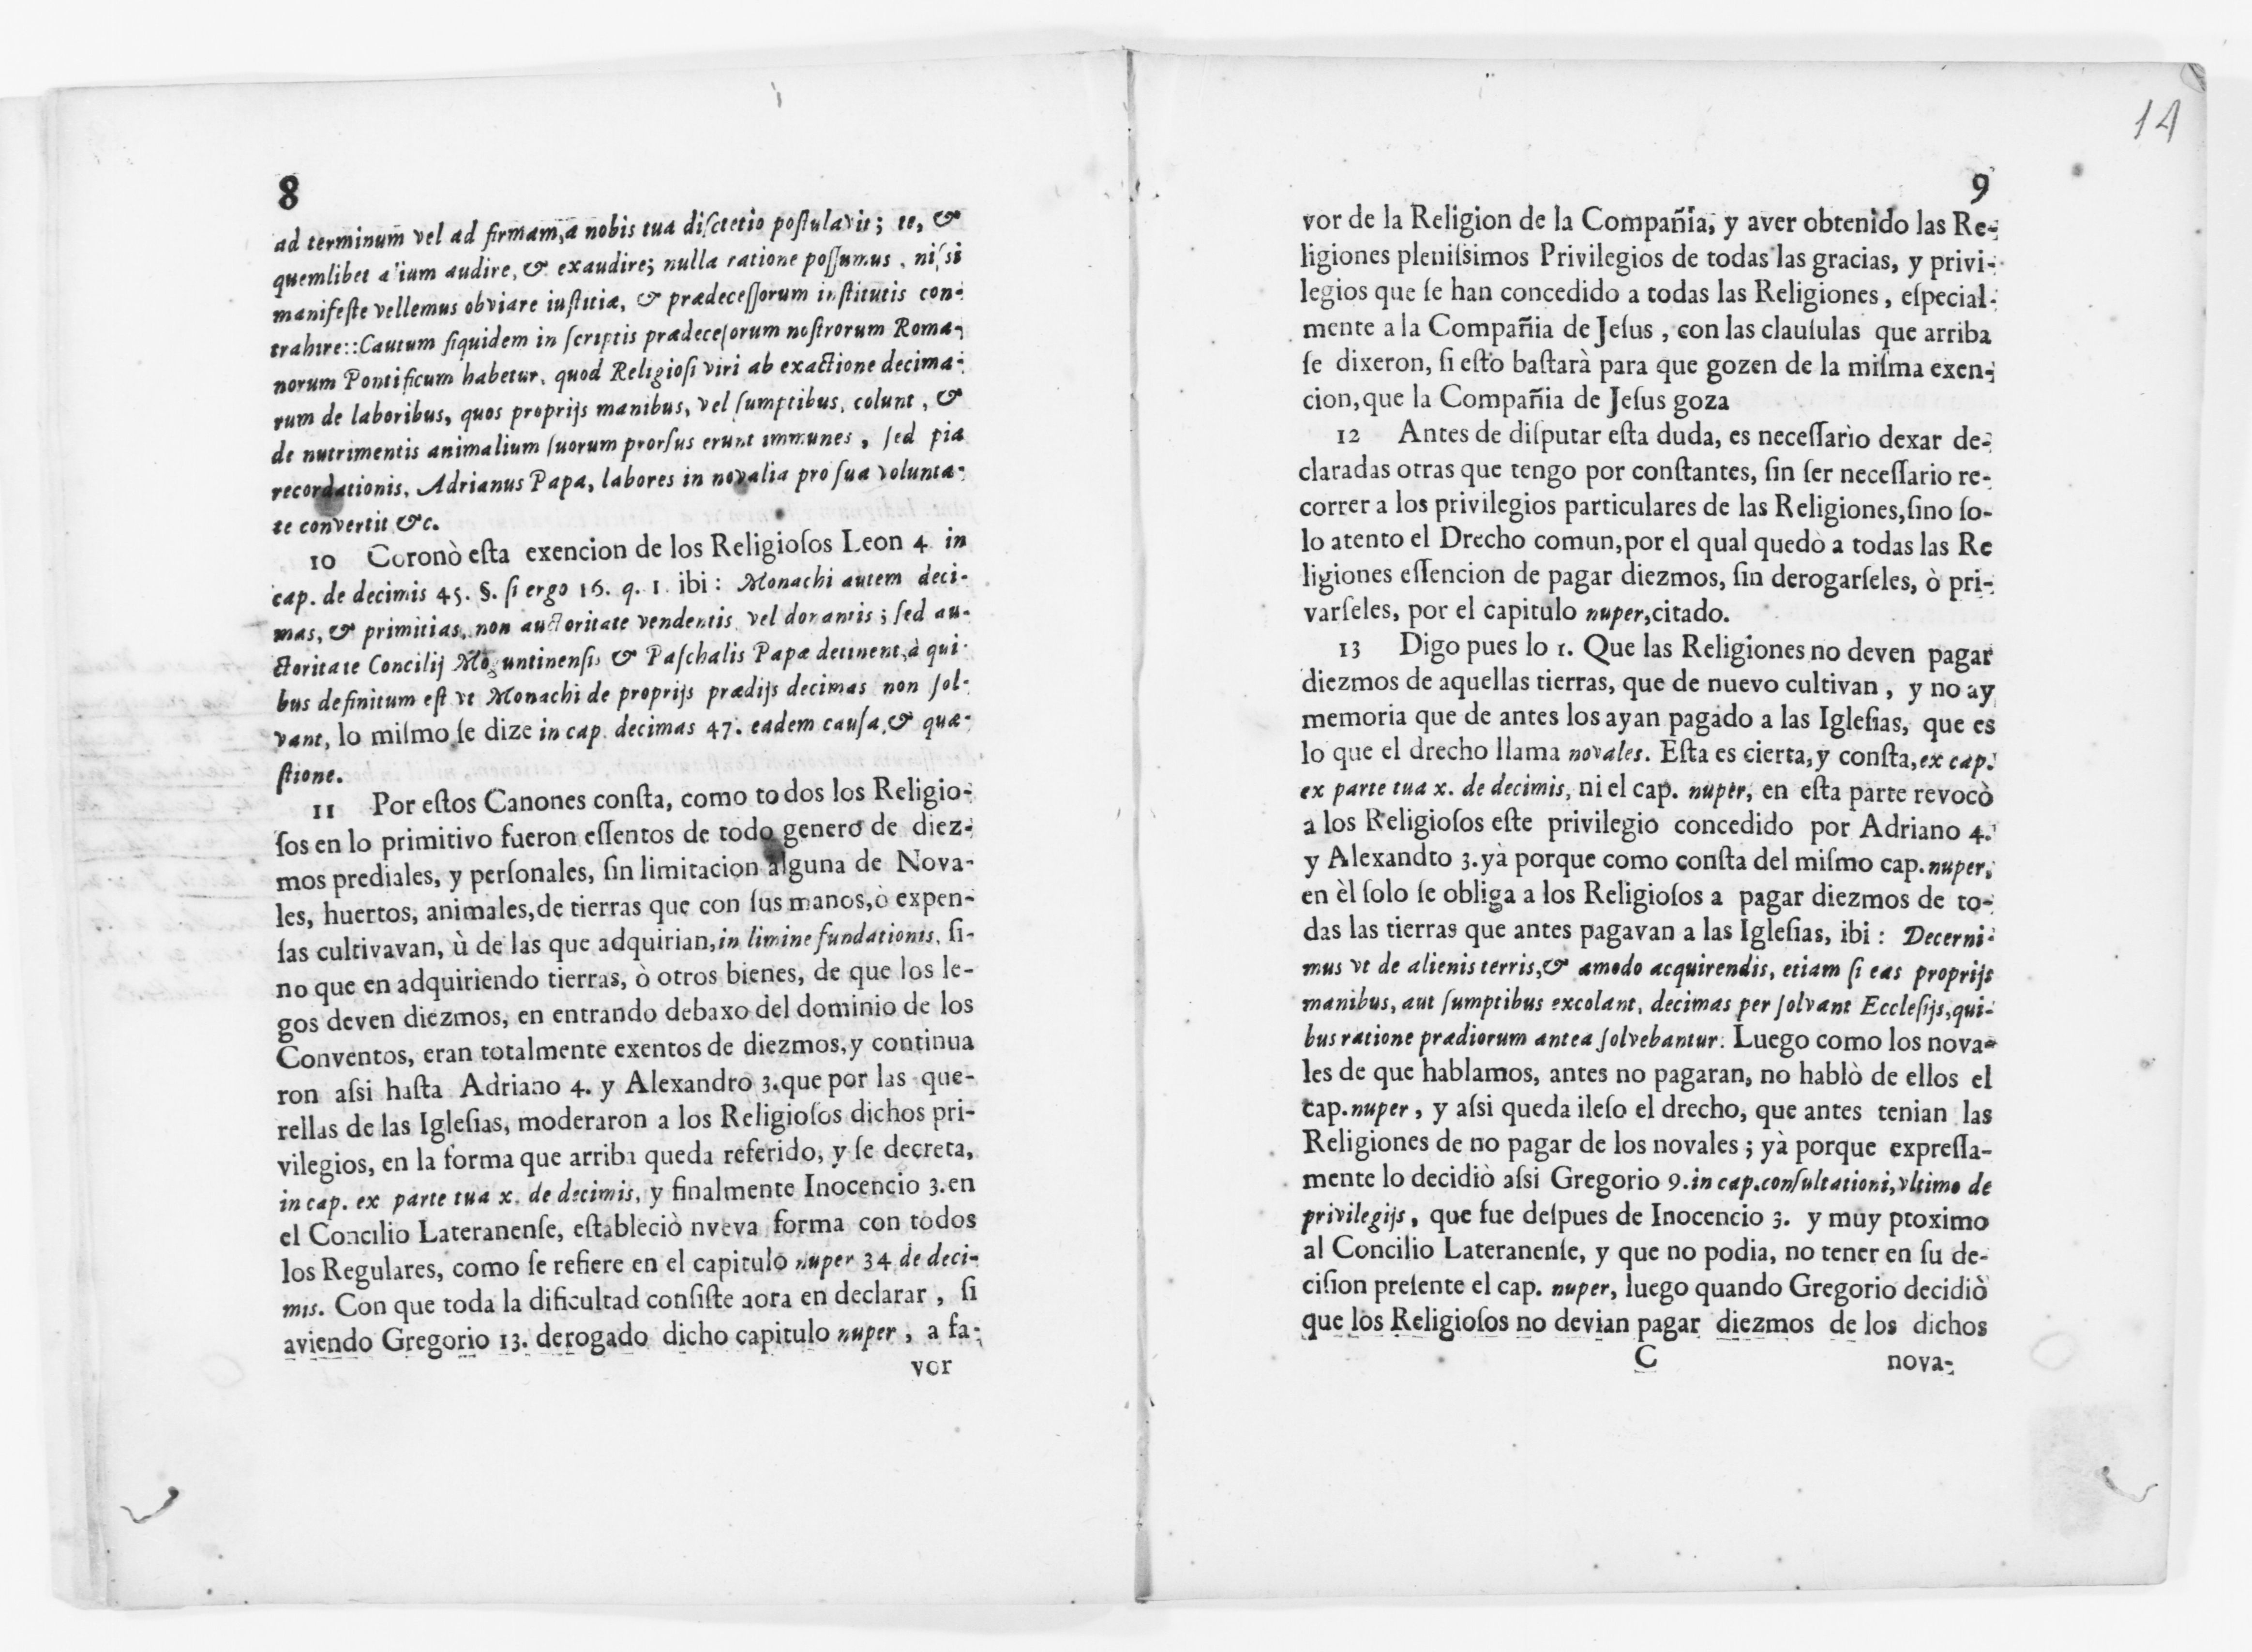 8
ad terminum vel ad firmam,a nobis tua diſctetio poſtulavit; te, &
quemlibet alium audire, & exaudire; nulla ratione poſſumus, niſsi
manifeſte vellemus obviare iuſtitiæ, & prædeceſſorum inſtitutis con-
trahire::Cautum ſiquidem in ſcriptis prædeceſorum noſtrorum Roma-
norum Pontificum habetur, quod Religioſi viri ab exactione decima-
rum de laboribus, quos proprijs manibus, vel ſumptibus, colunt, &
de nutrimentis animalium ſuorum prorſus erunt immunes, ſed pia
recordationis, Adrianus Papa, labores in novalia pro ſua volunta-
te convertit &c.
10 Coronò eſta exencion de los Religioſos Leon 4 in
cap. de decimis 45. §. ſi ergo 16. q. 1. ibi: Monachi autem deci-
mas, & primitias, non auctoritate vendentis vel donantis; ſed au-
ctoritate Concilij Moguntinenſis & Paſchalis Papæ detinent,à qui-
bus definitum eſt vt Monachi de proprijs prædijs decimas non ſol-
vant, lo miſmo ſe dize in cap. decimas 47. eadem cauſa,& quæ-
ſtione.
11 Por eſtos Canones conſta, como todos los Religio-
ſos en lo primitivo fueron eſſentos de todo genero de diez-
mos prediales, y perſonales, ſin limitacion alguna de Nova-
les, huertos, animales,de tierras que con ſus manos,ò expen-
ſas cultivavan, ù de las que adquirian,in limine fundationis, ſi-
no que en adquiriendo tierras, ò otros bienes, de que los le-
gos deven diezmos, en entrando debaxo del dominio de los
Conventos, eran totalmente exentos de diezmos,y continua
ron aſsi haſta Adriano 4. y Alexandro 3.que por las que-
rellas de las Igleſias, moderaron a los Religioſos dichos pri-
vilegios, en la forma que arriba queda referido, y ſe decreta,
in cap. ex parte tua x. de decimis, y finalmente Inocencio 3.en
el Concilio Lateranenſe, eſtableciò nveva forma con todos
los Regulares, como ſe refiere en el capitulo nuper 34 de deci-
mis. Con que toda la dificultad conſiſte aora en declarar, ſi
aviendo Gregorio 13. derogado dicho capitulo nuper, a fa-
vor
14
9
vor de la Religion de la Compañia, y aver obtenido las Re-
ligiones pleniſsimos Privilegios de todas las gracias, y privi-
legios que ſe han concedido a todas las Religiones, eſpecial-
mente a la Compañia de Jeſus, con las clauſulas que arriba
ſe dixeron, ſi eſto baſtarà para que gozen de la miſma exen-
cion,que la Compañia de Jeſus goza
12 Antes de diſputar eſta duda, es neceſſario dexar de-
claradas otras que tengo por conſtantes, ſin ſer neceſſario re-
correr a los privilegios particulares de las Religiones,ſino ſo-
lo atento el Drecho comun,por el qual quedò a todas las Re
ligiones eſſencion de pagar diezmos, ſin derogarſeles, ò pri-
varſeles, por el capitulo nuper,citado.
13 Digo pues lo 1. Que las Religiones no deven pagar
diezmos de aquellas tierras, que de nuevo cultivan, y no ay
memoria que de antes los ayan pagado a las Igleſias, que es
lo que el drecho llama novales. Eſta es cierta,y conſta,ex cap.
ex parte tua x. de decimis, ni el cap. nuper, en eſta parte revocò
a los Religioſos eſte privilegio concedido por Adriano 4.
y Alexandto 3.yà porque como conſta del miſmo cap.nuper,
en èl ſolo ſe obliga a los Religioſos a pagar diezmos de to-
das las tierras que antes pagavan a las Igleſias, ibi: Decerni-
mus vt de alienis terris,& amodo acquirendis, etiam ſi eas proprijs
manibus, aut ſumptibus excolant, decimas per ſolvant Eccleſijs,qui-
bus ratione prædiorum antea ſolvebantur. Luego como los nova-
les de que hablamos, antes no pagaran, no hablò de ellos el
cap.nuper, y aſsi queda ileſo el drecho, que antes tenian las
Religiones de no pagar de los novales; yà porque expreſſa-
mente lo decidiò aſsi Gregorio 9.in cap.conſultationi,vltimo de
privilegijs, que fue deſpues de Inocencio 3. y muy ptoximo
al Concilio Lateranenſe, y que no podia, no tener en ſu de-
ciſion preſente el cap. nuper, luego quando Gregorio decidiò
que los Religioſos no devian pagar diezmos de los dichos
C nova-